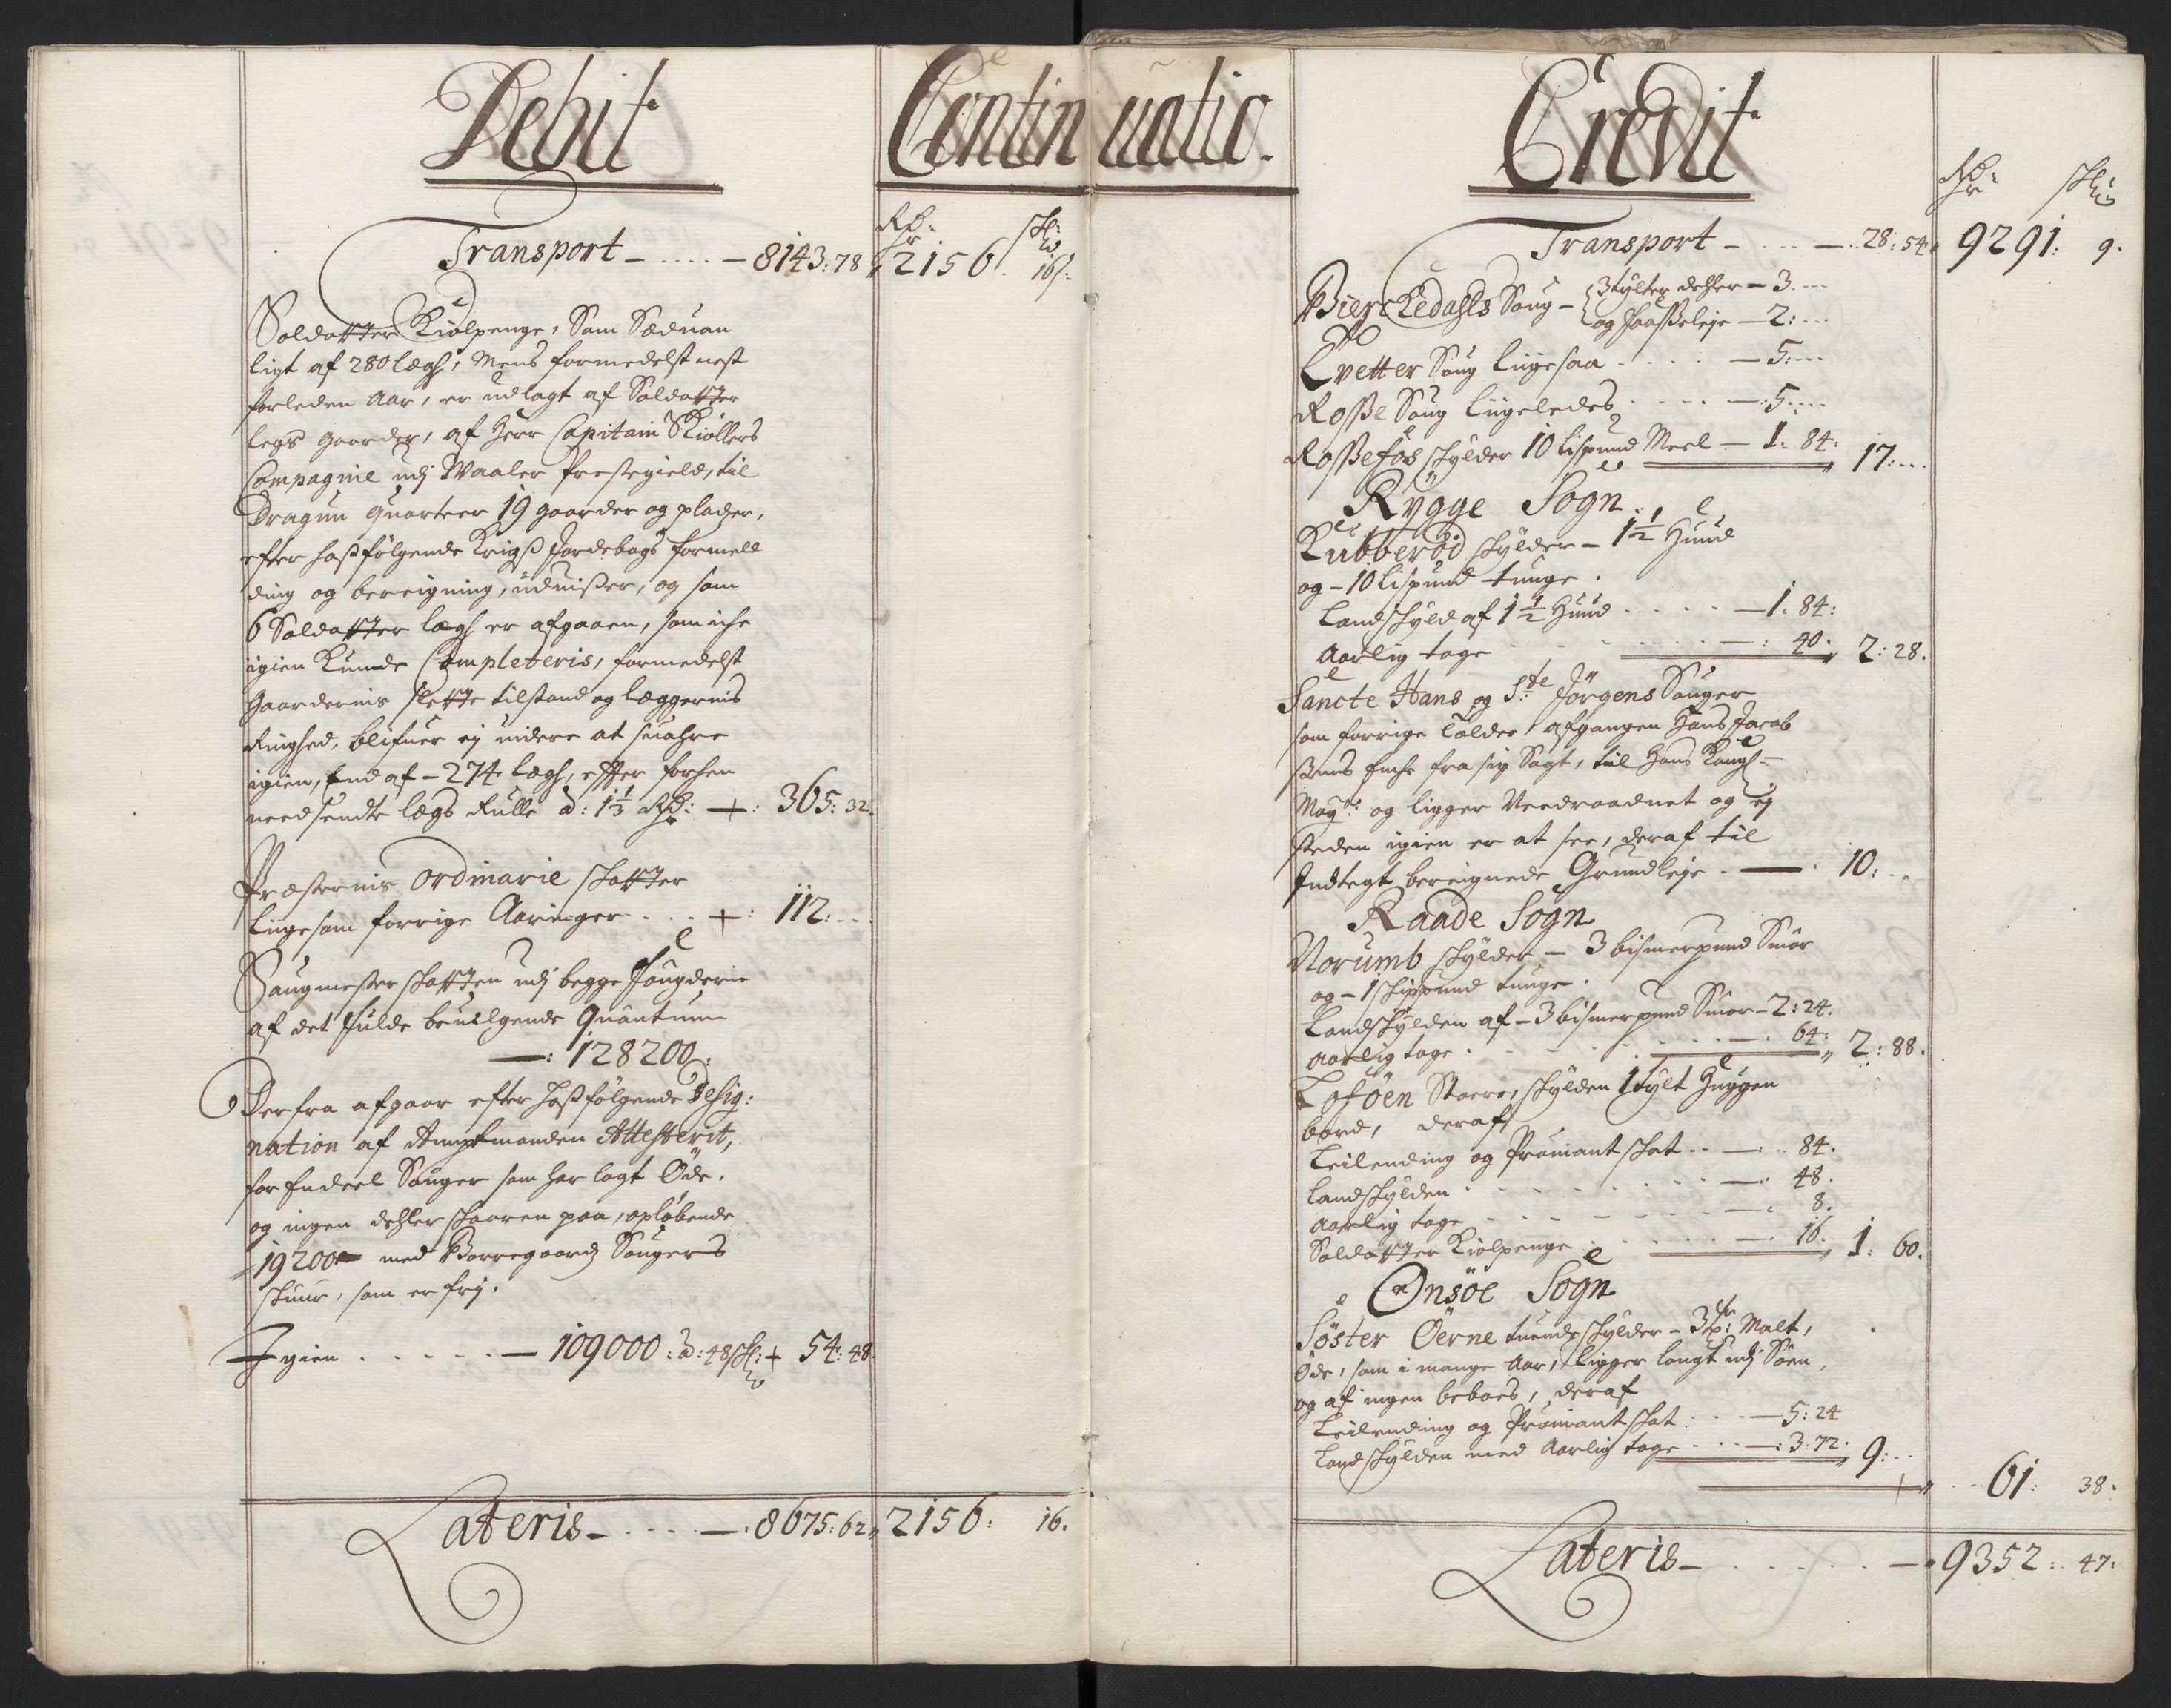 Debit
Continuatio.
Credit
Rd: sk:
Transport — 8143: 78 2156. 16.
Soldatter Kiolpenge, Som Sæduan
ligt af 280 lægh, Mens formedelst nest
forleden Aar, er udlagt af Soldatter
legs gaarder, af Herr Capitain Skiøllers
Compagnie udj Waaler Prestegield, til
Dragun quarteer 19 gaarder og pladzer,
efter hosfølgende Krigs Jordebogs formell
ding og bereigning, udviser, og som
6 Soldatter lægh er afgaaen, som iche
igien Kunde Completeris, formedelst
Gaardernis slette tilstand og læggernis
Ringhed, blifuer ej videre at suahre
igien, End af – 274 lægh, efter forhen
needsendte legs Rulle à: 1⅓ Rd: — 365: 32.
Præsternis Ordinarie skatter
liigesom forrige Aaringer . . . + 112: -
Saugmester skatten udj begge fougderie
af det fulde beuilgende Quantum
—: 128200.
Derfra afgaar efter hosfølgende Desig:
nation af Amptmanden Attesterit,
for Endeel Sauger som har lagt Øde.
og ingen dehler skaaren paa, opløbende
19200 — med Borregaards Saugers
skuur, som er frj.
Igien . . . . . — 109000: à: 48 sk: + 54: 48.
Lateris — 8675: 62 2156: 16.
Rd: sk:
Transport — 28: 54 9291: 9.
Bierckedahls Saug – 3 tylter dehler – 3. —
og fossseleje – 2: —
Evetter Saug liigesaa . . . . — 5: —
Rosse Saug liigeledes . . . . —: 5: —
Rossefos skylder 10 lispund Meel — 1: 84: 17: —
Rygge Sogn.
Kubberød skylder – 1½ Huud
og – 10 lispund tunge.
Landskyld af 1½ Huud . . . . — 1. 84:
Aarlig tage . . . . —: 40. 2: 28.
Sancte Hans og Ste Jørgens Sauger
som forrige Tolder, afgangen Hans Jacob
sens Enche fra sig Sagt, til Hans Kongl–
Mayts: og ligger Needraadnet og ej
steden igien er at see, deraf til
Indtegt bereignede Grundleje . — 10: -
Raade Sogn
Norumb skylder – 3 bismerpund Smør
og – 1 skippund tunge.
Landskylden af – 3 bismerpund Smør – 2: 24.
Aarlig tage . . . . —. 64: 2: 88.
Loføen Stoere, skylden 1 tylt Huggen
bord, deraf
Leilending og Proviant skat . . — . 84.
Landskylden . . . . —. 48.
Aarlig tage . . . . —. 8.
Soldatter Kiolpenge . . . . —. 16. 1: 60.
Onsøe Sogn
Søster Øerne tuende skylder – 3 tp: Malt,
Øde, som i mange Aar, ligger langt udj Søen,
og af ingen beboes, deraf
Leilending og Proviant skat . . . — 5: 24
Landskylden med Aarlig tage . . . —: 3: 72. 9: -
61: 38.
Lateris — 9352: 47: